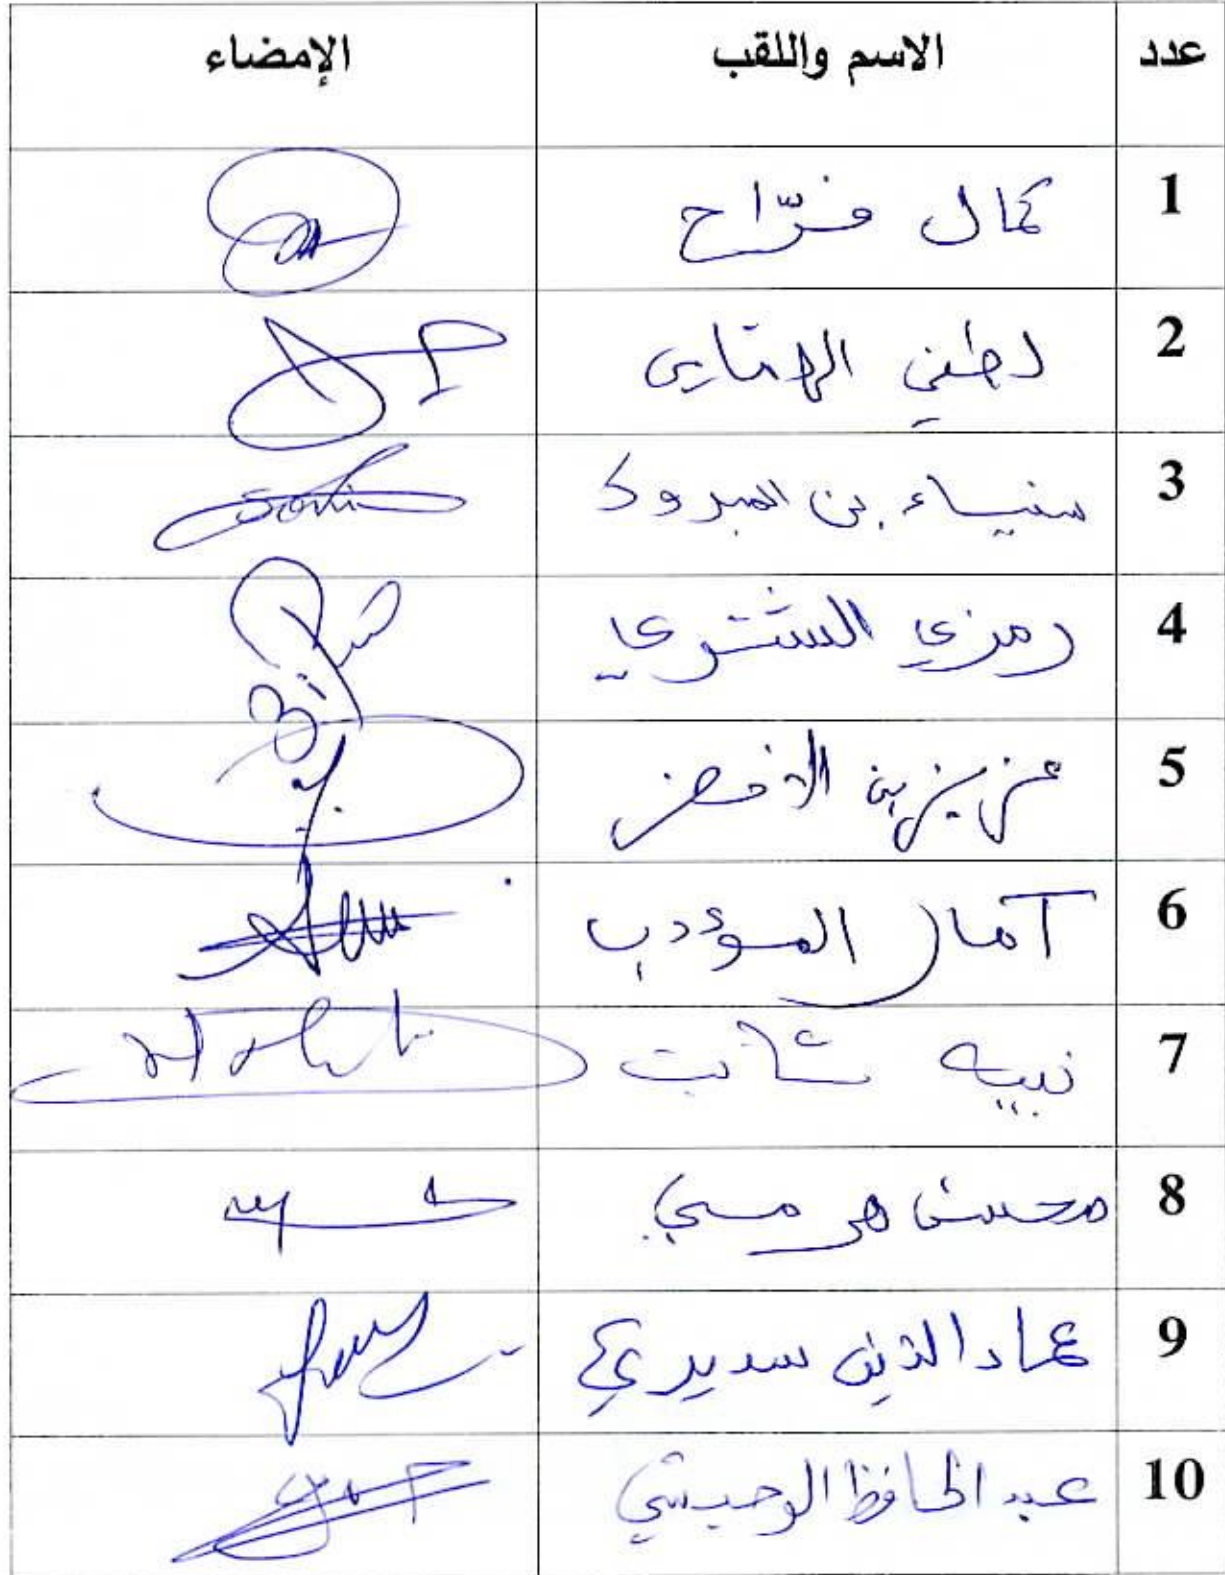 عدد الاسم واللقب الإمضاء
1 كمال فرّاح
2 لطفي الهمامي
3 سنياء بن المبروك
4 رمزي الشتوي
5 عزيز بن الأخضر
6 آمال المؤدب
7 نبيه ثابت
8 محسن هرمسي
9 عماد الدين سديري
10 عبد الحافظ الوحيشي